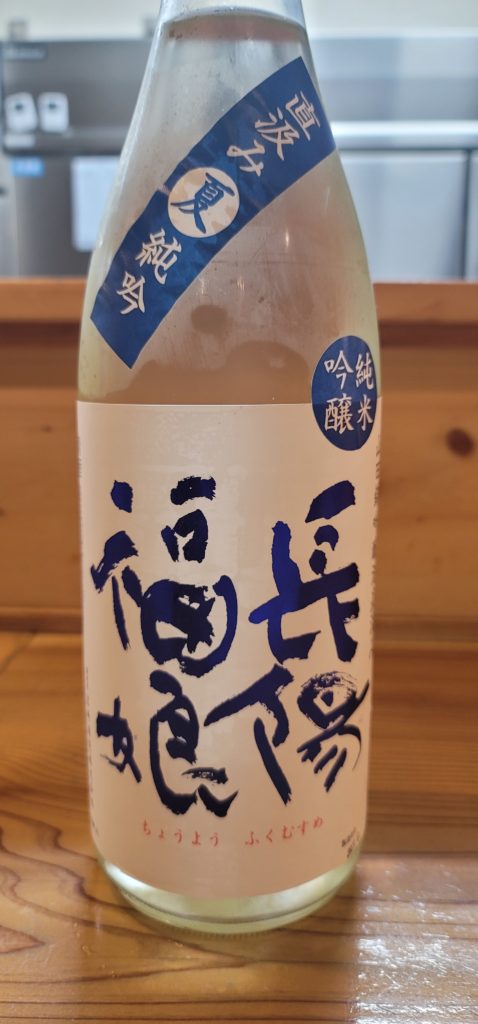 直汲み 夏 純吟
純米
吟醸
長陽
福娘
ちょうよう ふくむすめ